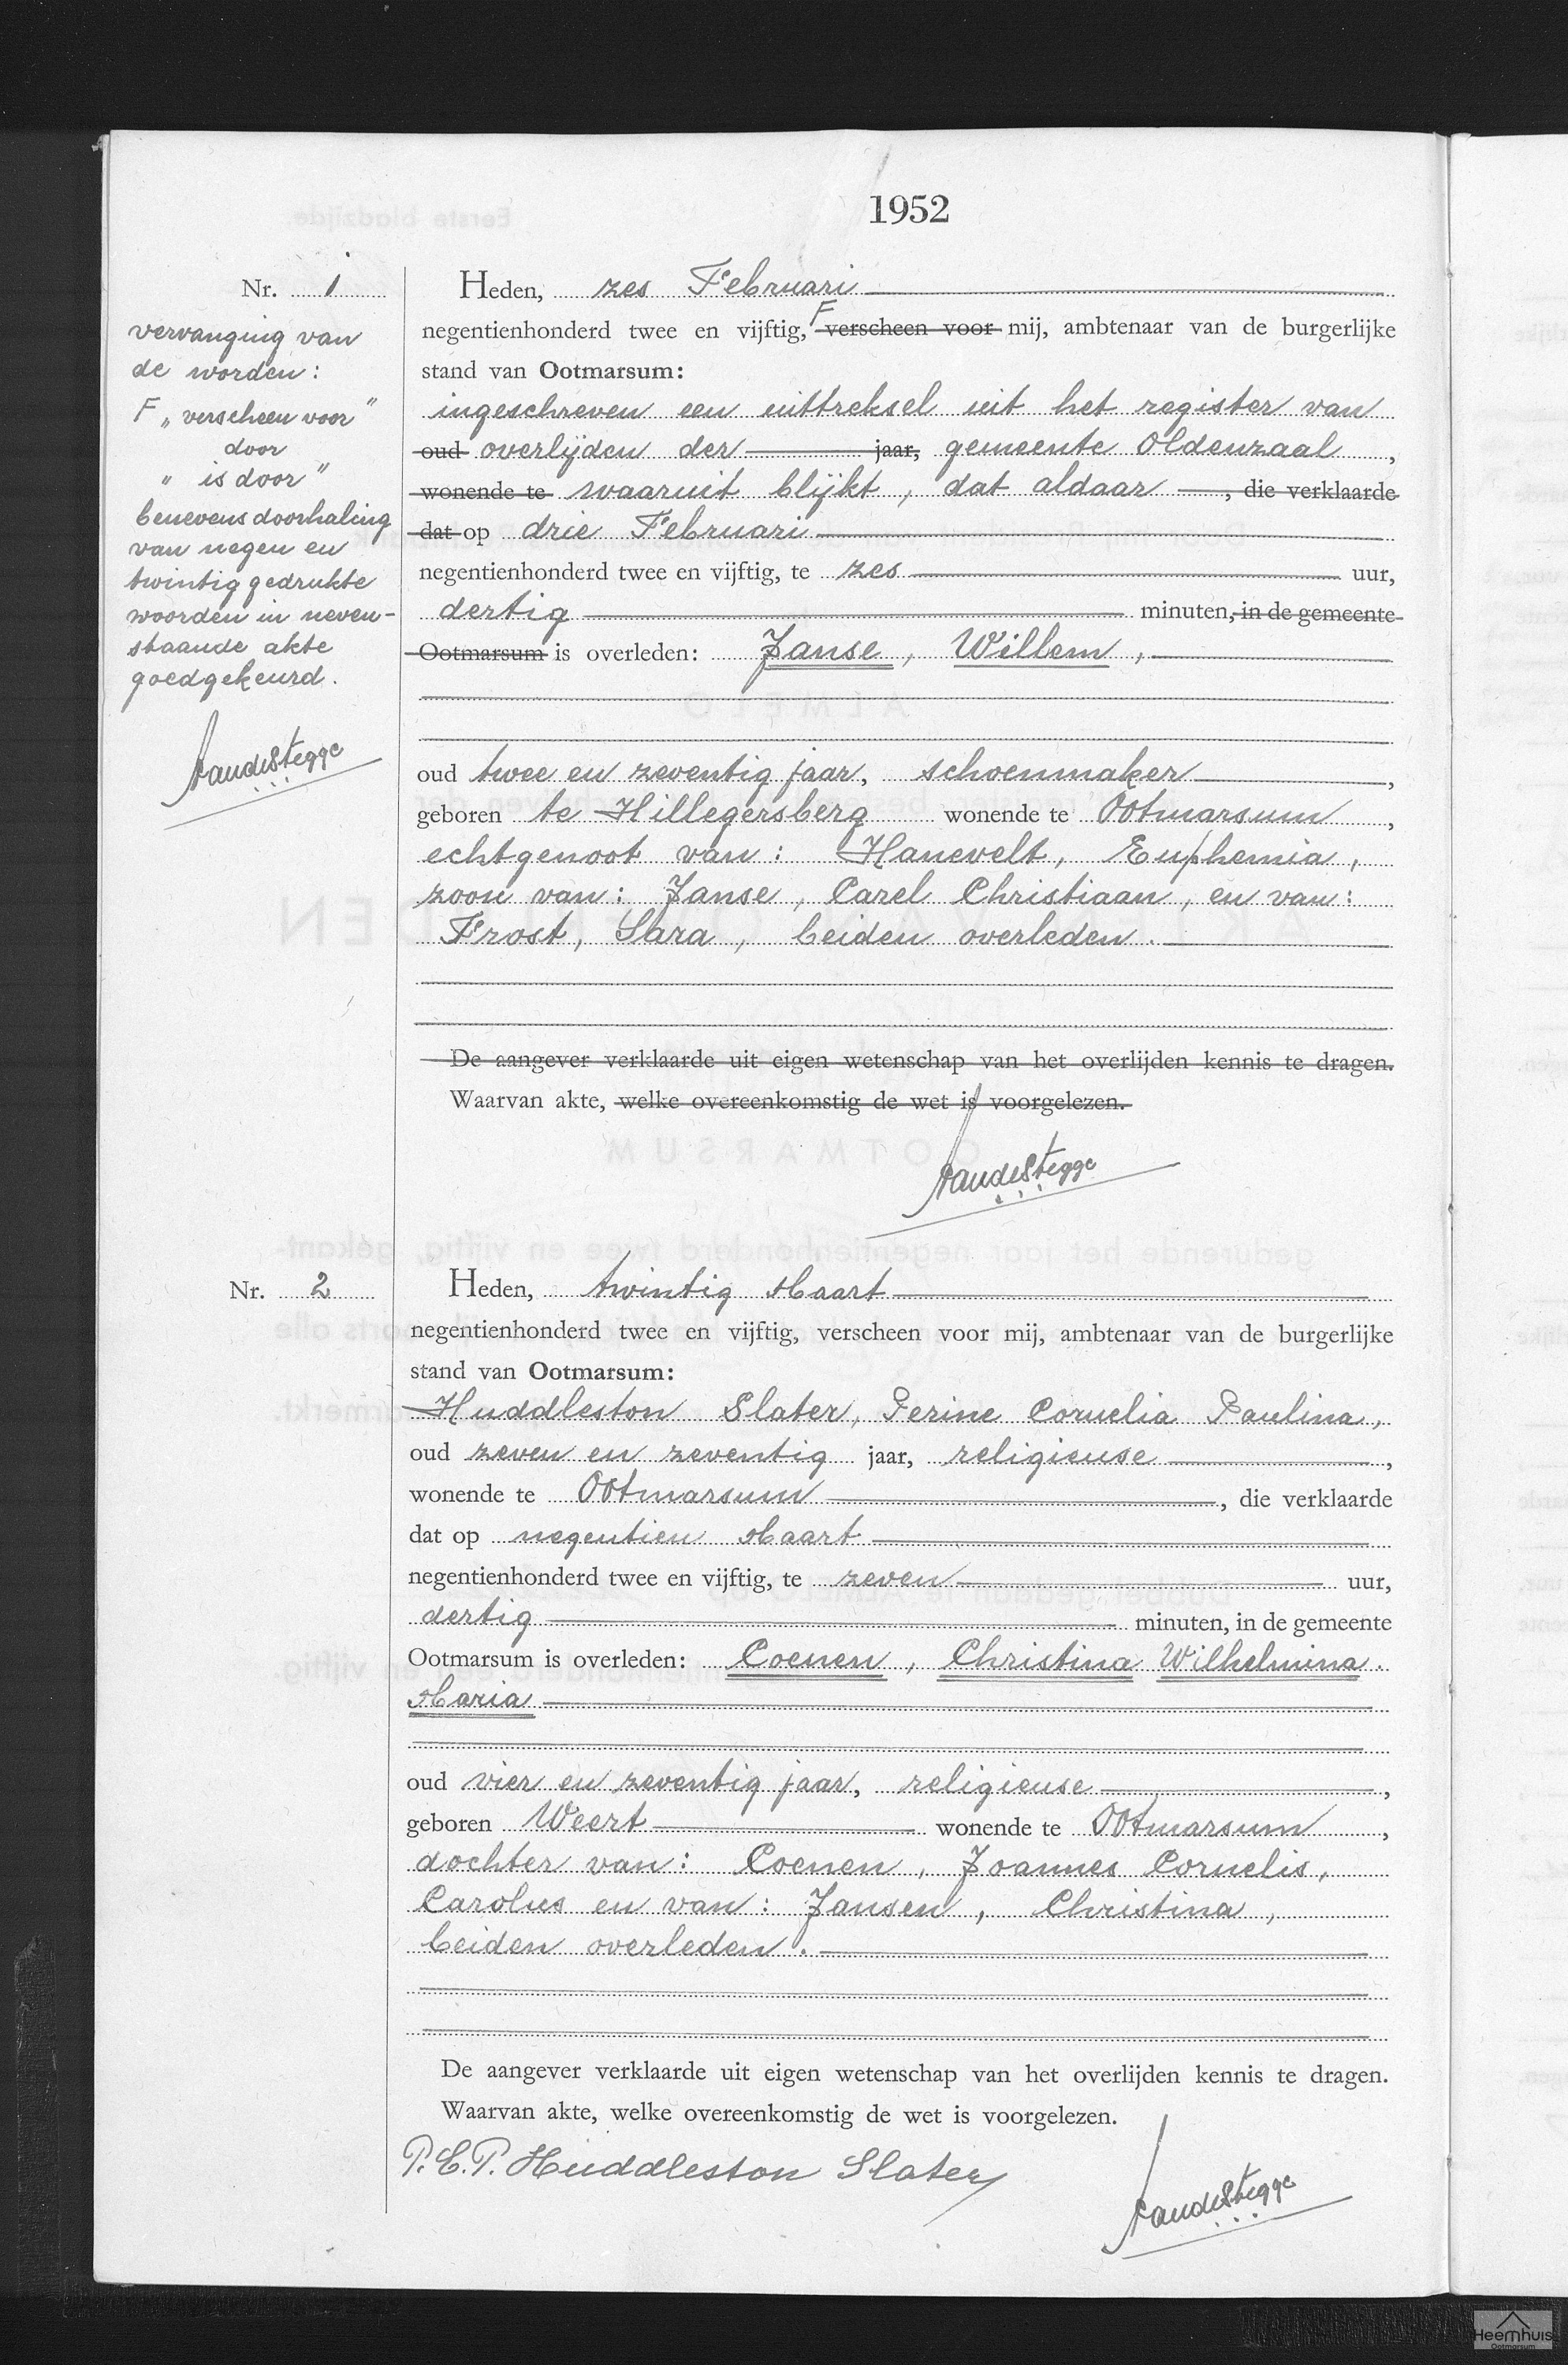 1952
Nr. 1
vervanging van
de worden:
F „verscheen voor"
door
„ is door"
benevens doorhaling
van negen en
twintig gedrukte
woorden in neven-
staande akte
goedgekeurd.
Heden, zes Februari
negentienhonderd twee en vijftig, F verscheen voor mij, ambtenaar van de burgerlijke
stand van Ootmarsum:
ingeschreven een uittreksel uit het register van
oud overlijden der jaar, gemeente Oldenzaal,
wonende te waaruit blijkt, dat aldaar, die verklaarde
dat op drie Februari
negentienhonderd twee en vijftig, te zes uur,
dertig minuten, in de gemeente
Ootmarsum is overleden: Janse, Willem,
oud twee en zeventig jaar, schoenmaker,
geboren te Hillegersberg wonende te Ootmarsum,
echtgenoot van: Hanevelt, Euphemia,
zoon van: Janse, Carel Christiaan, en van:
Frost, Sara, beiden overleden.
De aangever verklaarde uit eigen wetenschap van het overlijden kennis te dragen.
Waarvan akte, welke overeenkomstig de wet is voorgelezen.
Nr. 2
Heden, twintig Maart
negentienhonderd twee en vijftig, verscheen voor mij, ambtenaar van de burgerlijke
stand van Ootmarsum:
Huddleston Slater, Perine Cornelia Paulina,
oud zeven en zeventig jaar, religieuse,
wonende te Ootmarsum, die verklaarde
dat op negentien Maart
negentienhonderd twee en vijftig, te zeven uur,
dertig minuten, in de gemeente
Ootmarsum is overleden: Coenen, Christina Wilhelmina
Maria
oud vier en zeventig jaar, religieuse,
geboren Weert wonende te Ootmarsum,
dochter van: Coenen, Joannes Cornelis,
Carolus en van: Jansen, Christina,
beiden overleden.
De aangever verklaarde uit eigen wetenschap van het overlijden kennis te dragen.
Waarvan akte, welke overeenkomstig de wet is voorgelezen.
P.C.P. Huddleston Slater
Heemhuis
Ootmarsum